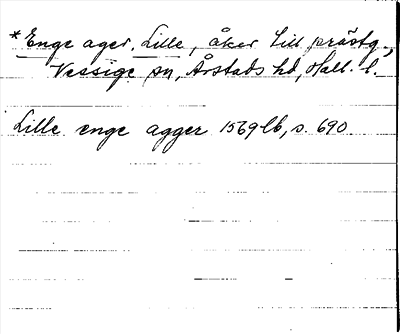 *Enge ager, Lille, åker till prästg.,
Vessige sn, Årstads hd, Hall. l.
Lille enge agger 1569 lb, s. 690